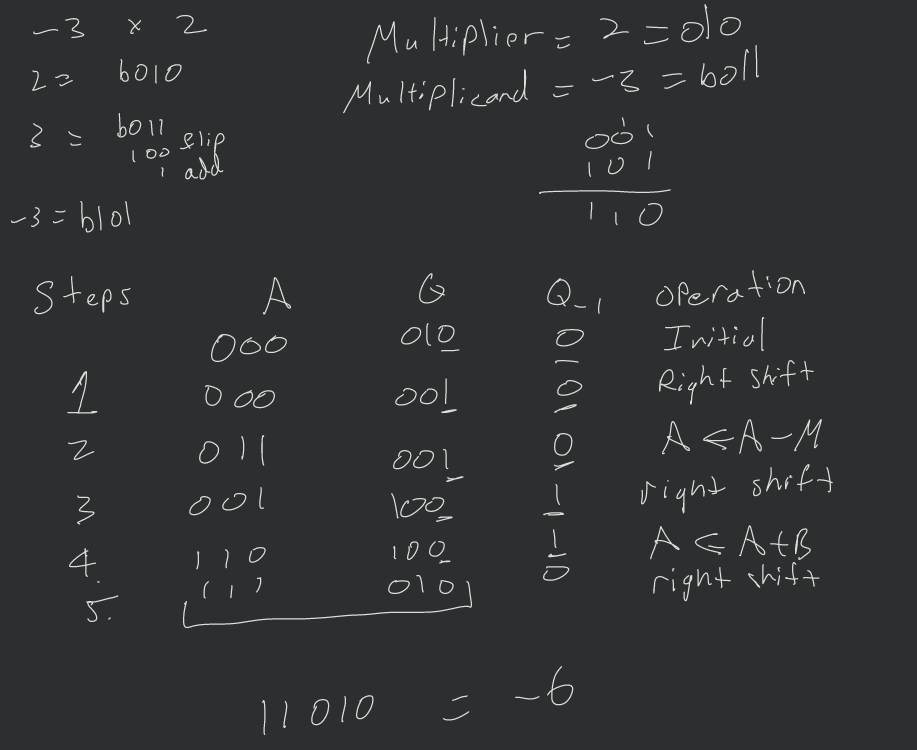 -3 x 2
2= b010
3 = b011
100 flip
1 add
-3=b101
Multiplier = 2 = 010
Multiplicand = -3 = b011
1
001
101
110
Steps A Q Q-1 operation
000 010 0 Initial
1 000 001 0 Right shift
2 011 001 0 A ← A-M
3 001 100 1 right shift
4. 110 100 1 A ← A+B
5. 111 010 0 right shift
11010 = -6